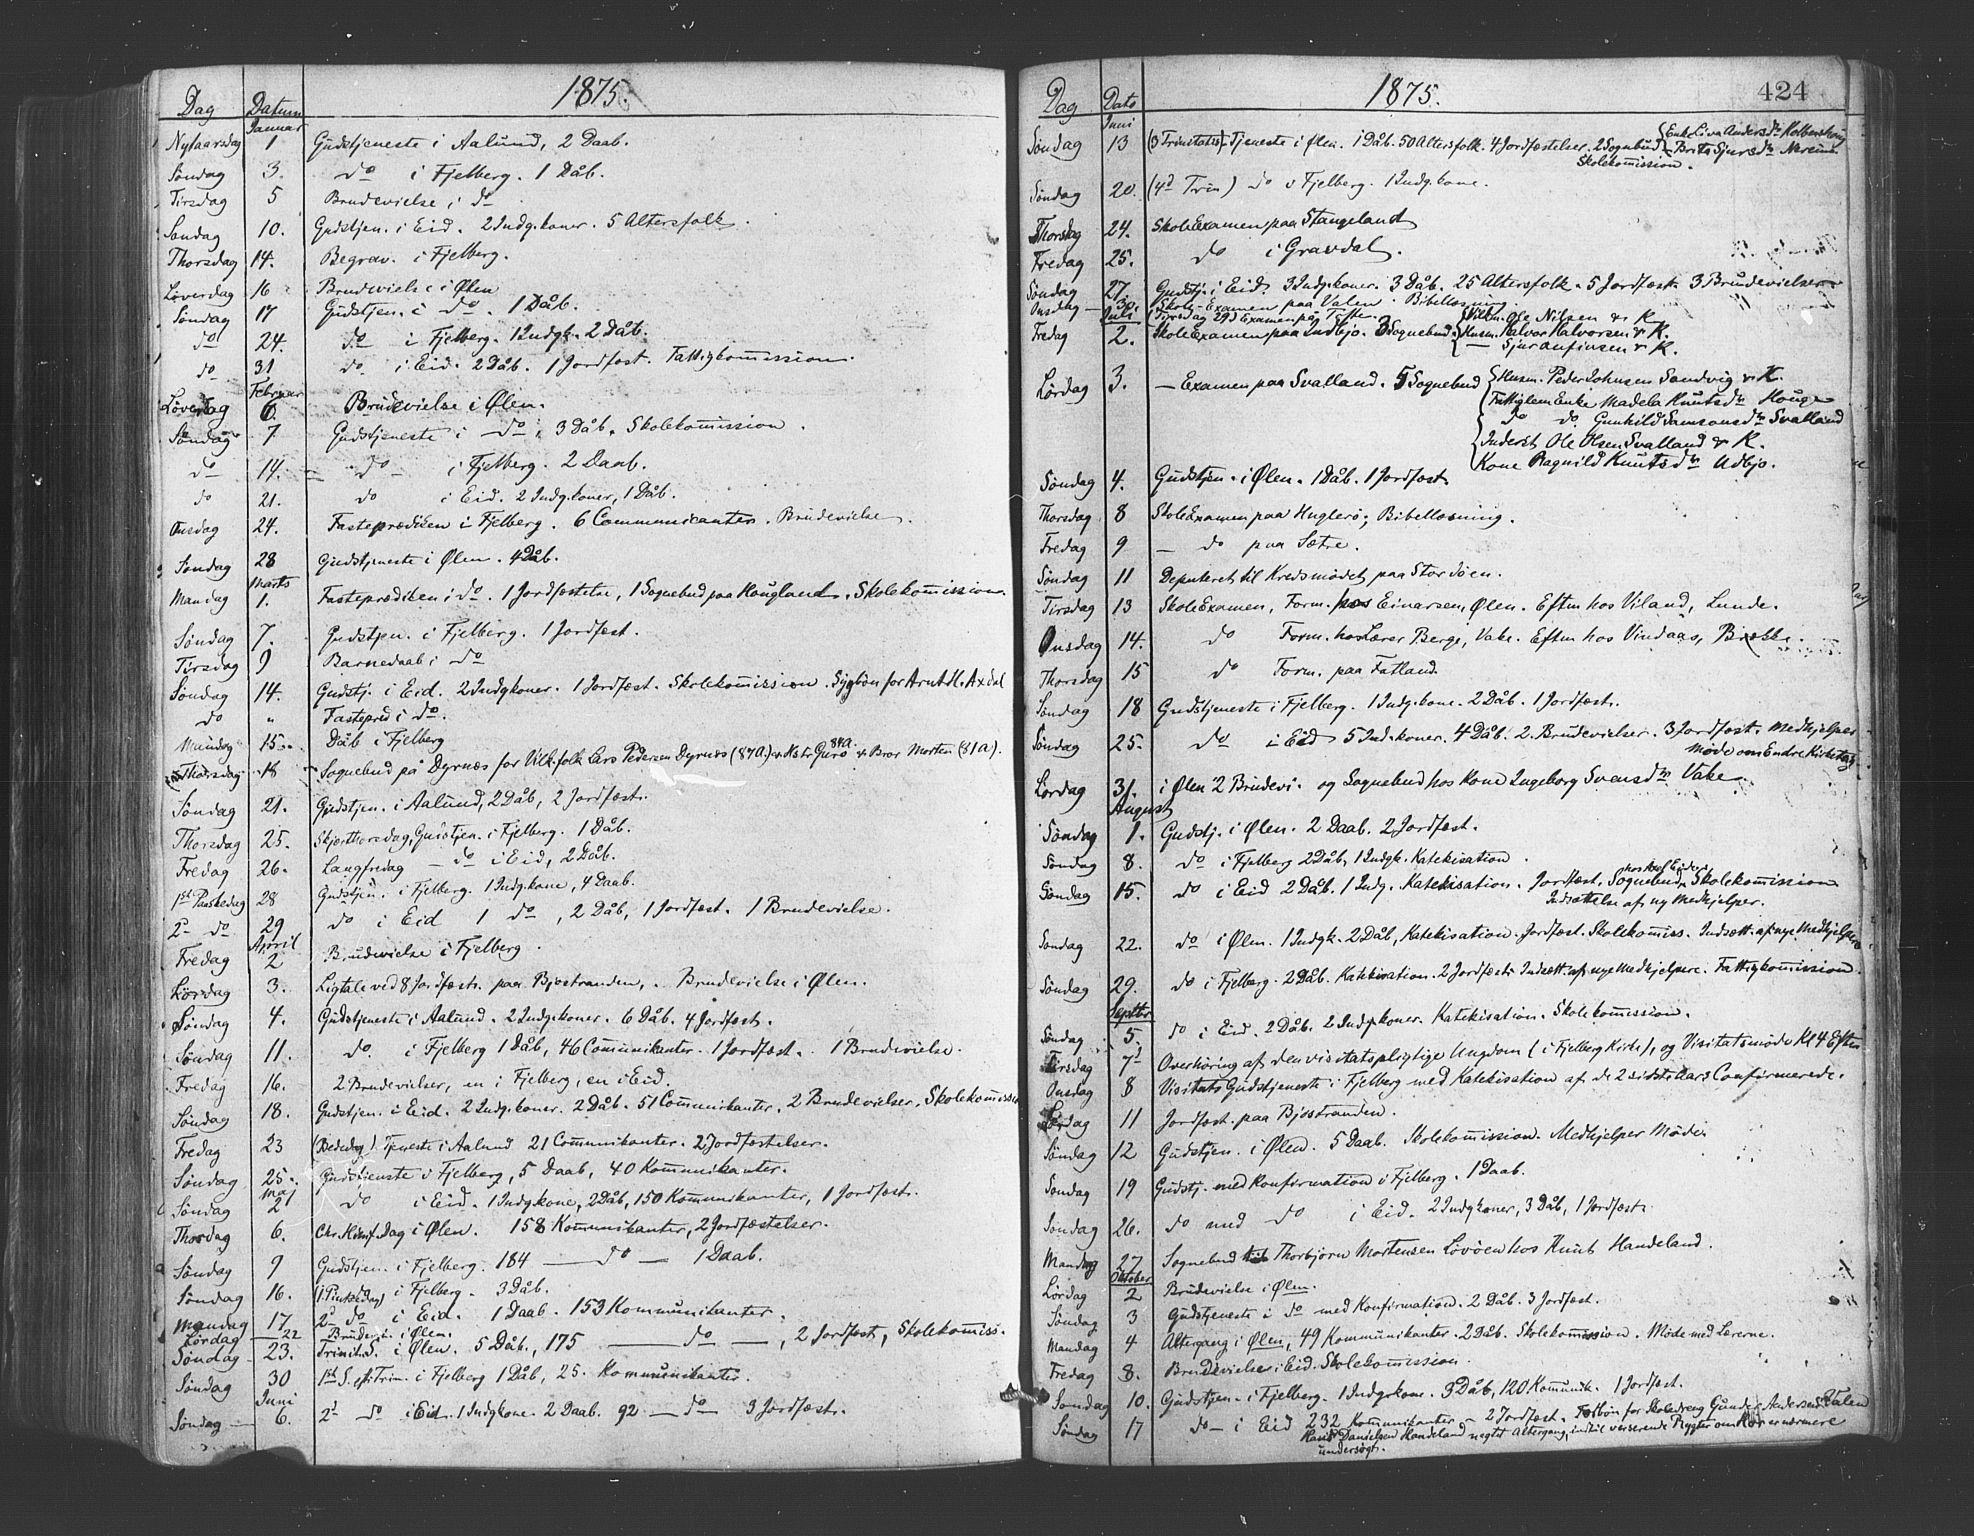 1875.
Dag Datum
Januar
Nytaarsdag 1 Gudstjeneste i Aalund, 2 Daab.
Søndag 3. do i Fjelberg. 1 Dåb.
Tirsdag 5 Brudevielse i do
Søndag 10. Gudstjen. i Eid. 2 Indgkoner. 5 Altersfolk.
Thorsdag 14. Begrav. i Fjelberg.
Løverdag 16 Brudevielse i Ølen
Søndag 17 Gudstjen. i do. 1 Dåb.
do 24. do i Fjelberg. 1 Indgk. 2 Dåb.
do 31 do. i Eid. 2 Dåb. 1 Jordfæst. Fattigkommission.
Februar
Løverdag 6. Brudevielse i Ølen.
Søndag 7 Gudstjeneste i do. 3 Dåb. Skolekommission.
do 14. do i Fjelberg. 2 Daab.
do 21. do i Eid. 2 Indgkoner, 1 Dåb.
Onsdag 24. Fasteprædiken i Fjelberg. 6 Communicanter. Brudevielse.
Søndag 28 Gudstjeneste i Ølen. 4 Dåb.
Marts
Mandag 1. Fasteprædiken i do. 1 Jordfæstelse, 1 Sognebud paa Hougland. Skolekommission.
Søndag 7. Gudstjen. i Fjelberg. 1 Jordfæst.
Tirsdag 9 Barnedaab i do
Søndag 14. Gudstj. i Eid. 2 Indgkoner. 1 Jordfæst. Skolekommission. Sygbøn for Arnt Axdal
do " Fastepræd i do.
Mandag 15. Dåb i Fjelberg
Thorsdag 18 Sognebud på Dyrnæs for Vilk.folk Lars Pedersen Dyrnæs (87A.) & Kstr Guro 84A. & Bror Morten (81A).
Søndag 21. Gudstjen. i Aalund, 2 Dåb, 2 Jordfæst.
Thorsdag 25. Skjærthorsdag, Gudstjen. i Fjelberg. 1 Dåb.
Fredag 26. Langfredag — do i Eid, 2 Dåb.
1st Paaskedag 28 Gudstjen. i Fjelberg. 1 Indgkone, 4 Daab.
2n do 29 do i Eid 1 do, 2 Dåb, 1 Jordfæst. 1 Brudevielse.
April
Fredag 2 Brudevielse i Fjelberg.
Lørdag 3. Ligtale ved 8 Jordfæst. paa Bjostranden. Brudevielse i Ølen.
Søndag 4. Gudstjeneste i Aalund. 2 Indgkoner. 6 Dåb. 4 Jordfæst.
Søndag 11. do. i Fjelberg 1 Dåb, 46 Communikanter. 1 Jordfæst. 1 Brudevielse.
Fredag 16. 2 Brudevielser, en i Fjelberg, en i Eid.
Søndag 18. Gudstjen. i Eid. 2 Indgkoner. 2 Dåb. 51 Communikanter. 2 Brudevielser. Skolekommission
Fredag 23 (Bededag) Tjeneste i Aalund 21 Communikanter. 2 Jordfæstelser.
Søndag 25. Gudstjeneste i Fjelberg, 5 Daab, 40 Kommunikanter.
Maj
Søndag 2 do i Eid. 1 Indgkone, 2 Dåb, 150 Kommunikanter, 1 Jordfæst.
Thorsdag 6. Chr. Himf. Dag i Ølen. 158 Kommunikanter, 2 Jordfæstelser.
Søndag 9 Gudstjen. i Fjelberg. 184 — do — 1 Daab.
Søndag 16. (1 Pintsedag) i Fjelberg. 3 Dåb.
Mandag 17 2n do i Eid. 1 Daab. 153 Kommunikanter.
Lørdag — 22 Brudevi. i Ølen.
Søndag 23. Trinit.S. i Ølen. 5 Dåb, 175 — do —, 2 Jordfæst, Skolekommiss.
Søndag 30 1st S. eft Trin. i Fjelberg 1 Dåb, 25. Kommunikanter.
Juni
Søndag 6. 2d do i Eid. 1 Indgkone. 2 Daab. 92 — do — 3 Jordfæst.
1875.
424
Dag Dato
Juni
Søndag 13 (3 Trinitatis) Tjeneste i Ølen. 1 Dåb. 50 Altersfolk. 4 Jordfæstelser. 2 Sognebud { Enke Liva Andersdtr
Brita Sjursdtr
Skolekommission.
Søndag 20. (4d Trin) do i Fjelberg. 1 Indgkone.
Thorsdag 24. Skole Examen paa Stangeland
Fredag 25. do i Gravdal.
Søndag 27. Gudstj. i Eid. 3 Indgkoner. 3 Dåb. 25 Altersfolk. 5 Jordfæst. 3 Brudevielser
Onsdag 30. Skole-Examen paa Valen. Bibellæsning.
Juli (Tirsdag 29d Examen paa
Fredag 2. Skole Examen paa Indbjo. 3 Sognebud { Vilkm. Ole Nilsen & K.
Husm. Halvor Halvorsen & K.
— Sjur Anfinsen & K.
Lørdag 3. — Examen paa Svalland. 5 Sognebud { Husm. Peder Johnsen Sandvig & K.
Fattiglem Enke Madela Knutsdtr Houge
do do. Gunhild Samsonsdtr Svalland
Inderst Ole Olsen Svalland & K.
Kone Ragnild Knutsdtr Udbjo.
Søndag 4. Gudstjen. i Ølen. 1 Dåb. 1 Jordfæst.
Thorsdag 8 Skole Examen paa Huglerø; Bibellæsning.
Fredag 9 — do paa Sætre.
Søndag 11 Deputeret til Kredsmødet paa Stordøen.
Tirsdag 13 Skole Examen, Form. hos Einarsen, Ølen. Eftm hos Viland, Lunde.
Onsdag 14. do Form. hos Lærer Berge, Vake. Eftm hos Vindaas, Brække.
Thorsdag 15 do Form. paa Fatland.
Søndag 18 Gudstjeneste i Fjelberg. 1 Indgkone. 2 Dåb. 1 Jordfæst.
Søndag 25. do i Eid 5 Indgkoner. 4 Dåb. 2 Brudevielser. 3 Jordfæst. Medhjelper
Møde om Endre Kirketeig
Lørdag 31. i Ølen 2 Brudevi. og Sognebud hos Kone Ingeborg Svensdtr Vake
August
Søndag 1. Gudstj. i Ølen. 2 Daab. 2 Jordfæst.
Søndag 8. do i Fjelberg 2 Dåb, 1 Indgk. Katekisation.
Søndag 15. do i Eid 2 Dåb. 1 Indg. Katekisation. Jordfæst. Sognebud. Skolekommission
Indsættelse af ny Medhjelper.
Søndag 22. do i Ølen. 1 Indgk. 2 Dåb, Katekisation. Jordfæst. Skolekomiss. Indsætt. af nye Medhjelpere
Søndag 29. do i Fjelberg. 2 Dåb. Katekisation. 2 Jordfæst. Indsætt. af nye Medhjelpere. Fattigkommission.
Septbr
Søndag 5. do i Eid. 2 Dåb. 2 Indgkoner. Katekisation. Skolekommission.
Tirsdag 7d Overhøring af den visitatspligtige Ungdom (i Fjelberg Kirke), og Visitatsmøde Kl 4 Eftm
Onsdag 8 Visitats Gudstjeneste i Fjelberg med Katekisation af de 2 sidste Aars Confirmerede.
Lørdag 11 Jordfæst. paa Bjostranden.
Søndag 12 Gudstjen. i Ølen. 5 Daab. Skolekommission. Medhjelper Møde.
Søndag 19 Gudstj. med Konfirmation i Fjelberg. 1 Daab.
Søndag 26. do med do i Eid. 2 Indgkoner, 3 Dåb, 1 Jordfæst.
Mandag 27 Sognebud Thorbjørn Mortensen Løvøen hos Knut Handeland.
Oktober
Lørdag 2 Brudevielse i Ølen.
Søndag 3 Gudstjeneste i do med Konfirmation. 2 Dåb. 3 Jordfæst.
Mandag 4 Altergang i Ølen, 49 Kommunikanter. 2 Dåb. Skolekommission. Møde med Lærerne.
Fredag 8. Brudevielser i Eid. Skolekommission.
Søndag 10. Gudstjen. i Fjelberg. 1 Indgkone. 3 Dåb, 120 Komunik. 1 Jordfæst.
Søndag 17 do — i Eid 232 Kommunikanter — 2 Jordfæst. Forbøn for Skoledreng Gunder Andersen Valen
Hans Danielsen Handeland negtet Altergang, indtil verserende Rygter om Hor er nærmere
undersøgt.